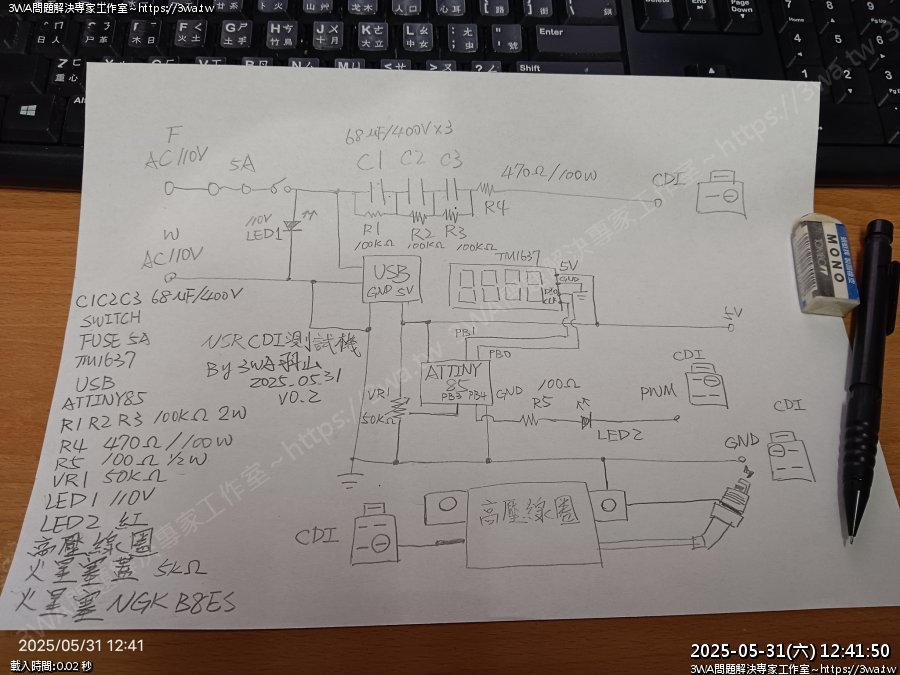 3WA問題解決專家工作室~https://3wa.tw
F
AC 110V
5A
68μF/400V×3
C1 C2 C3
470Ω/100W
CDI
R4
R1 R2 R3
100KΩ 100KΩ 100KΩ
110V
LED1
W
AC 110V
USB
GND 5V
TM1637
5V
GND
DIO
CLK
5V
C1C2C3 68μF/400V
SWITCH
FUSE 5A
TM1637
USB
ATTINY85
R1 R2 R3 100KΩ 2W
R4 470Ω/100W
R5 100Ω 1/2W
VR1 50KΩ
LED1 110V
LED2 紅
高壓線圈
火星塞蓋 5KΩ
火星塞 NGK B8ES
NSR CDI測試機
By 3WA羽山
2025.05.31
V0.2
PB1
PB0
ATTINY
85
PB3 PB4
GND
VR1
50KΩ
100Ω
R5
LED2
PNM
CDI
CDI
GND
CDI
高壓線圈
MONO
Enter
Shift
Alt
Delete
End
Page
Down
2025/05/31 12:41
載入時間:0.02 秒
2025-05-31(六) 12:41:50
3WA問題解決專家工作室~https://3wa.tw